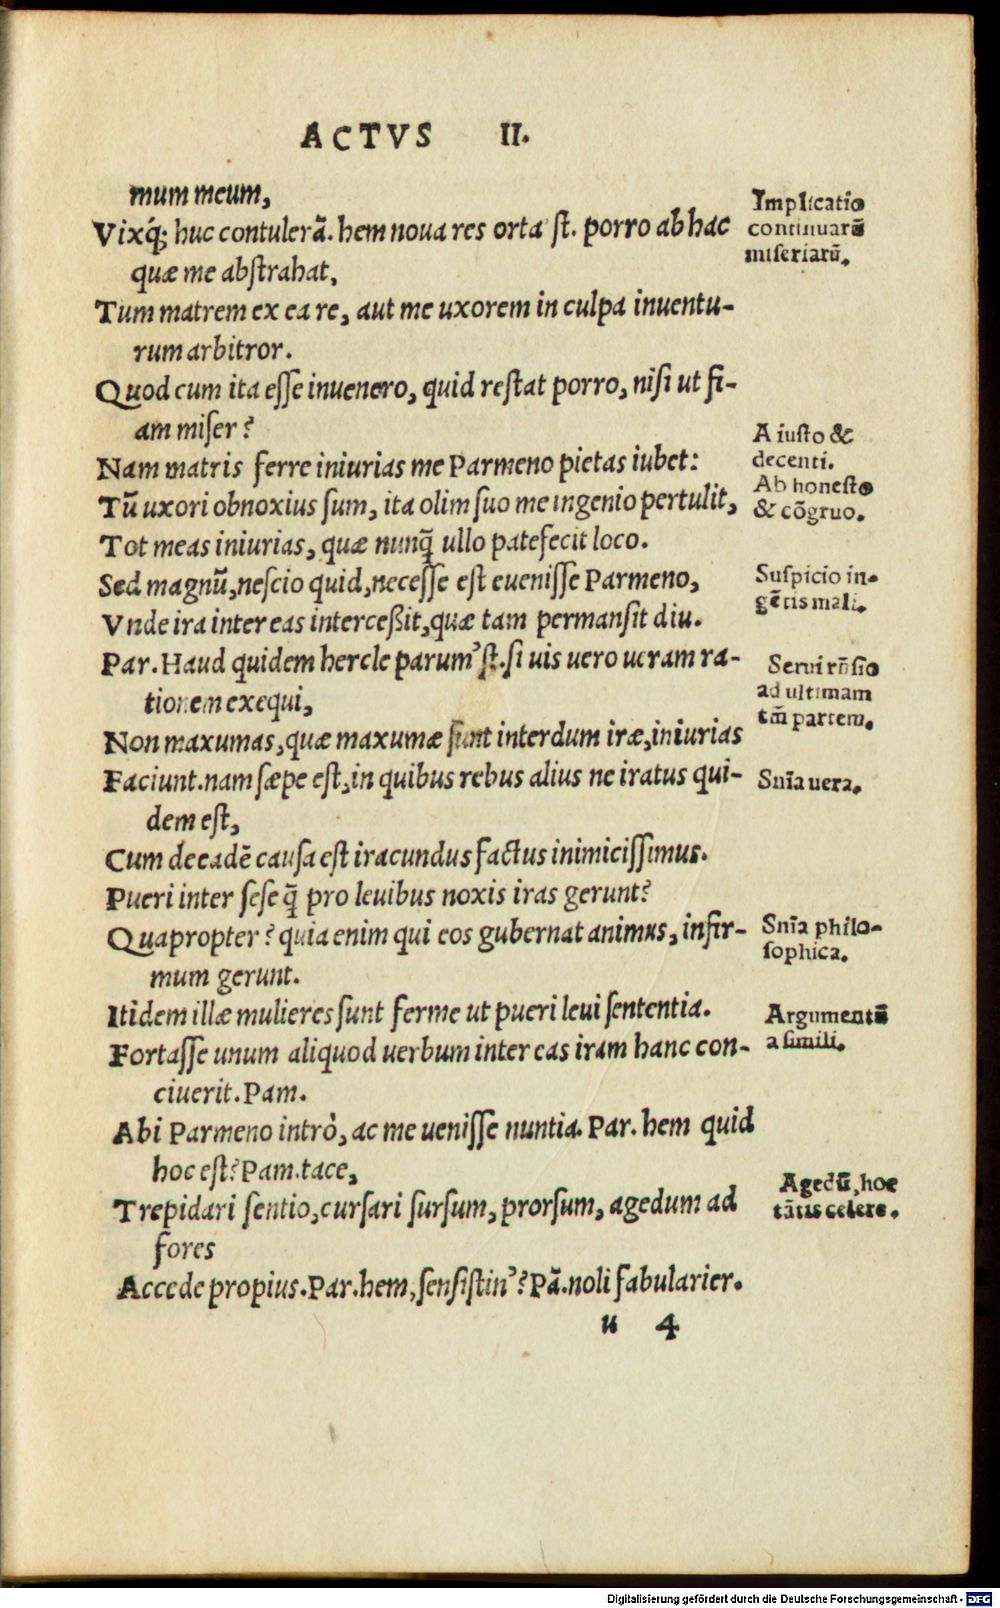 ACTVS II.
mum meum,
Vixq́; huc contulerã. hem noua res orta ʼst. porro ab hac
quæ me abstrahat,
Tum matrem ex ea re, aut me uxorem in culpa inuentu-
rum arbitror.
Quod cum ita esse inuenero, quid restat porro, nisi ut fi-
am miser?
Nam matris ferre iniurias me Parmeno pietas iubet:
Tũ uxori obnoxius sum, ita olim suo me ingenio pertulit,
Tot meas iniurias, quæ nunq̃ ullo patefecit loco.
Sed magnũ, nescio quid, necesse est euenisse Parmeno,
Vnde ira inter eas interceßit, quæ tam permansit diu.
Par. Haud quidem hercle parum ʼst. si uis uero ueram ra-
tionem exequi,
Non maxumas, quæ maxumæ sunt interdum iræ, iniurias
Faciunt. nam sæpe est, in quibus rebus alius ne iratus qui-
dem est,
Cum de eadẽ causa est iracundus factus inimicissimus.
Pueri inter sese q̃ pro leuibus noxis iras gerunt?
Quapropter? quia enim qui eos gubernat animus, infir-
mum gerunt.
Itidem illæ mulieres sunt ferme ut pueri leui sententia.
Fortasse unum aliquod uerbum inter eas iram hanc con-
ciuerit. Pam.
Abi Parmeno intrò, ac me uenisse nuntia. Par. hem quid
hoc est? Pam. tace,
Trepidari sentio, cursari sursum, prorsum, agedum ad
fores
Accede propius. Par. hem, sensistin'? Pã. noli fabularier.
u 4
Implicatio
continuarũ
miseriarũ.
A iusto &
decenti.
Ab honesto
& cõgruo.
Suspicio in-
gẽtis mali.
Serui rñsio
ad ultimam
tm̃ partem.
Snĩa uera.
Snĩa philo-
sophica.
Argumentũ
a simili.
Agedũ, hoc
tãtis celere.
Digitalisierung gefördert durch die Deutsche Forschungsgemeinschaft - DFG